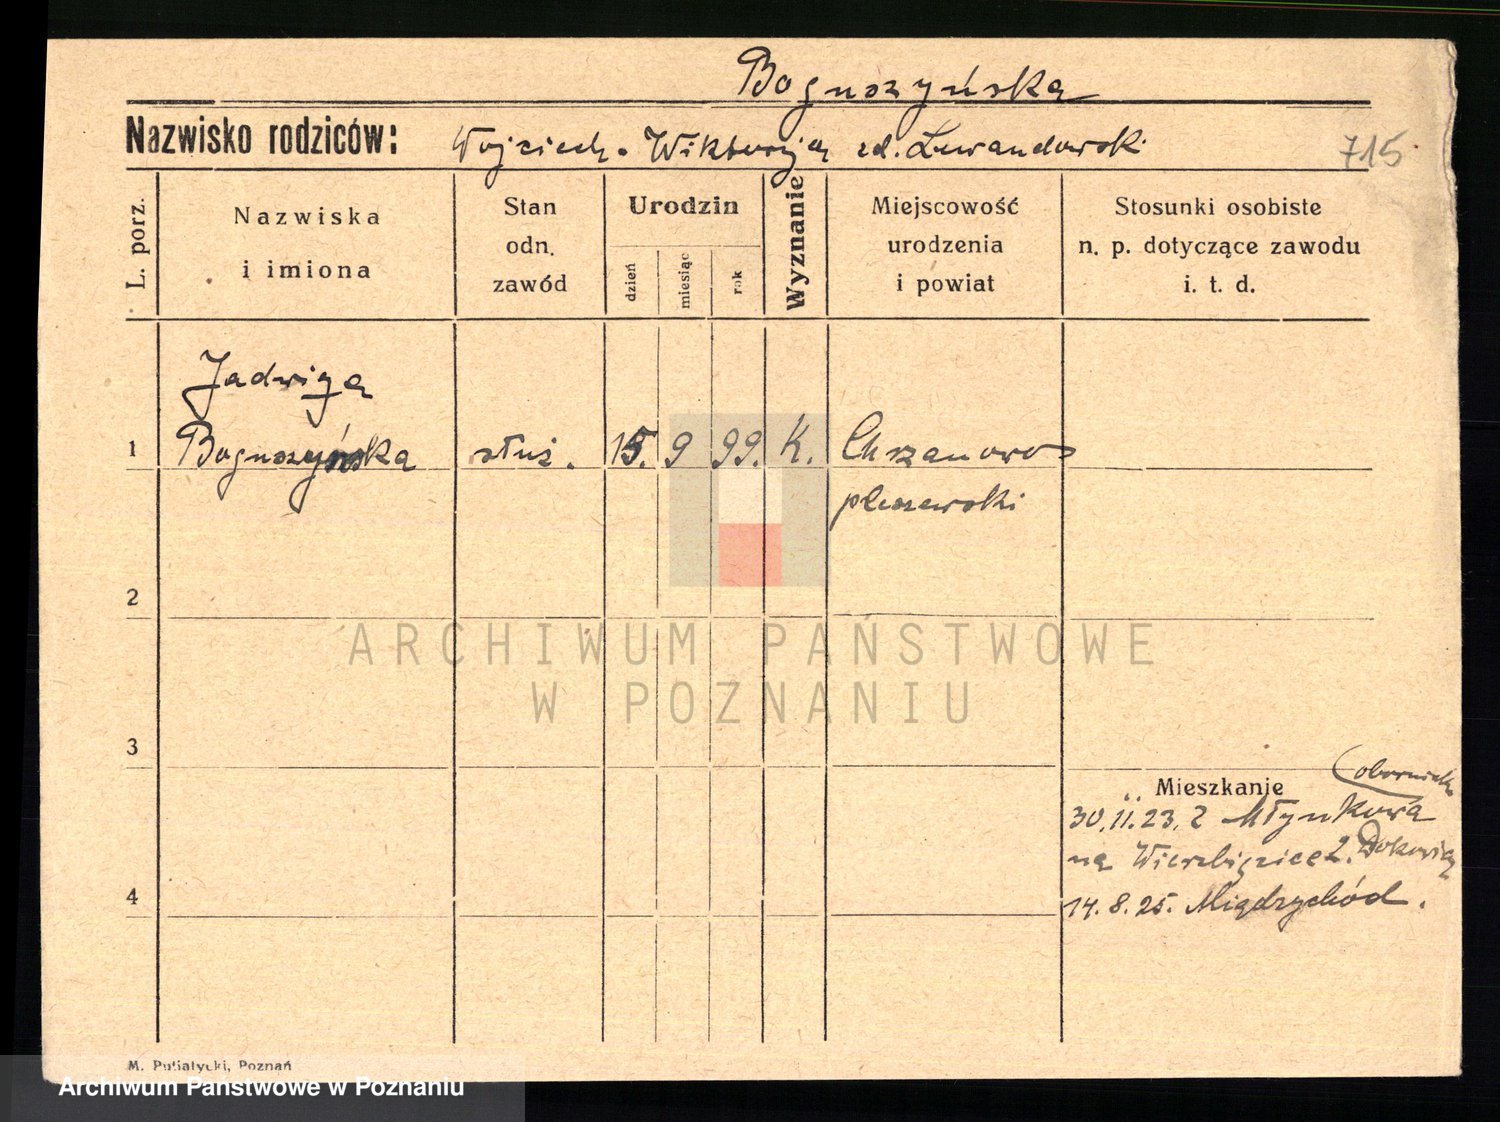 Boguszyńska
Nazwisko rodziców: Wojciech - Wiktorja zd. Lewandowski
715
L. porz.
Nazwiska
i imiona
Stan
odn.
zawód
Urodzin
dzień
miesiąc
rok
Wyznanie
Miejscowość
urodzenia
i powiat
Stosunki osobiste
n. p. dotyczące zawodu
i. t. d.
Jadwiga
1 Boguszyńska służ. 15. 9 99. K. Chrzanowo
pleszewski
2
ARCHIWUM PAŃSTWOWE
W POZNANIU
3
Mieszkanie
30.11.23. z Młynkowa
na
14.8.25. Międzychód.
4
M. Putiatycki, Poznań
Archiwum Państwowe w Poznaniu